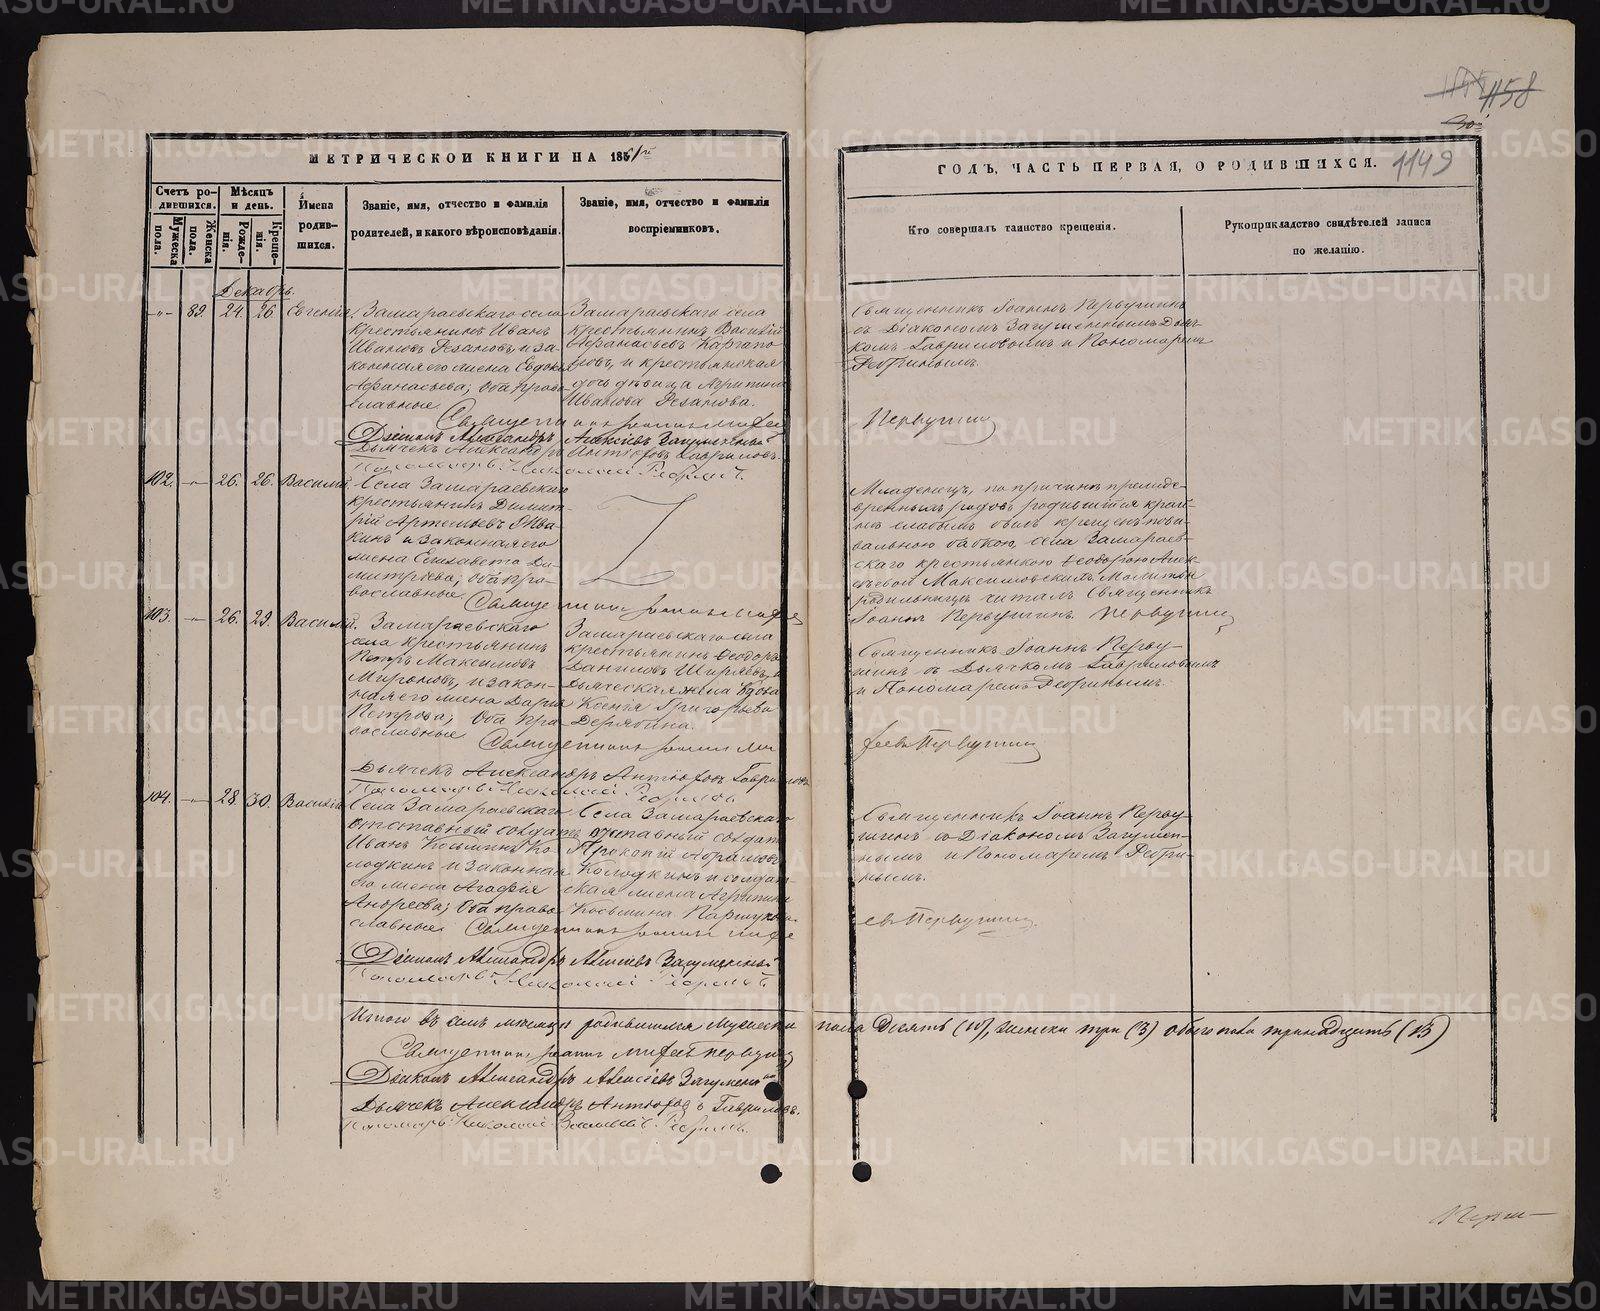 1158
1149
МЕТРИЧЕСКОЙ КНИГИ НА 1861й
ГОДЪ, ЧАСТЬ ПЕРВАЯ, О РОДИВШИХСЯ.
Счетъ родившихся.
Мужеска пола.
Женска пола.
Мѣсяцъ и день.
Рожденія.
Крещенія.
Имена родившихся.
Званіе, имя, отчество и фамилія
родителей, и какого вѣроисповѣданія.
Званіе, имя, отчество и фамилія
воспріемниковъ.
Кто совершалъ таинство крещенія.
Рукоприкладство свидѣтелей записи
по желанію.
Декабрь.
89. 24. 26 Евгенія.
Замараевскаго села
крестьянинъ Иванъ
Ивановъ Рязановъ, и за-
конная его жена Евдокія
Афанасьева; оба право-
славные
Замараевскаго села
крестьянинъ Василій
Афанасьевъ Каргапо-
ловъ, и крестьянская
дочь дѣвица Агрипина
Иванова Рязанова.
Священникъ Іоаннъ Первушинъ
съ Діакономъ Загуменнымъ Дьяч-
комъ Гавриловымъ и Пономаремъ
Первушин
Діаконъ Александръ Алексѣевъ Загуменный
Дьячекъ Александръ Гавриловъ.
102. 26. 26. Василій.
Села Замараевскаго
крестьянинъ Димит-
рій Артемьевъ
и законная его
жена Елизавета Ди-
митріева; оба пра-
вославные
Младенецъ, по причинѣ преждe-
временныхъ родовъ родившійся край-
не слабымъ былъ крещенъ пови-
вальною бабкою, села Замараев-
скаго крестьянкою Ѳеодорою Алек-
сѣевой Максимовскихъ. Молитвы
родильницѣ читалъ Священникъ
Іоаннъ Первушинъ. Первушин
103. 26. 29. Василій.
Замараевскаго
села крестьянинъ
Петръ Максимовъ
Мироновъ, и закон-
ная его жена Дарія
Петрова; оба пра-
вославные
Замараевскаго села
крестьянинъ Ѳеодоръ
Даниловъ Ширяевъ, и
Дьяческая жена вдова
Ксенія Григорьева
Дерябина.
Священникъ Іоаннъ Перву-
шинъ съ Дьячкомъ Гавриловымъ
и Пономаремъ
феевъ Первушин
Дьячекъ Александръ Гавриловъ
104. 28. 30. Василій
Села Замараевскаго
отставный солдатъ
Иванъ Косьминъ Ко-
лодкинъ и законная
его жена Агафья
Андреева; оба право-
славные
Села Замараевскаго
отставный солдатъ
Прокопій Абрамовъ
Колодкинъ и солдат-
ская жена Агрипина
Косьмина
Священникъ Іоаннъ Перву-
шинъ съ Діакономъ Загумен-
нымъ и Пономаремъ
евъ Первушин
Діаконъ Александръ Алексѣевъ Загуменный
Итого въ семъ мѣсяцѣ родившихся Мужеска пола Десять (10), женска три (3) обоего пола тринадцать (13)
Священникъ Іоаннъ Первушинъ
Діаконъ Александръ Алексѣевъ Загуменный
Дьячекъ Александръ Гавриловъ.
METRIKI.GASO-URAL.RU